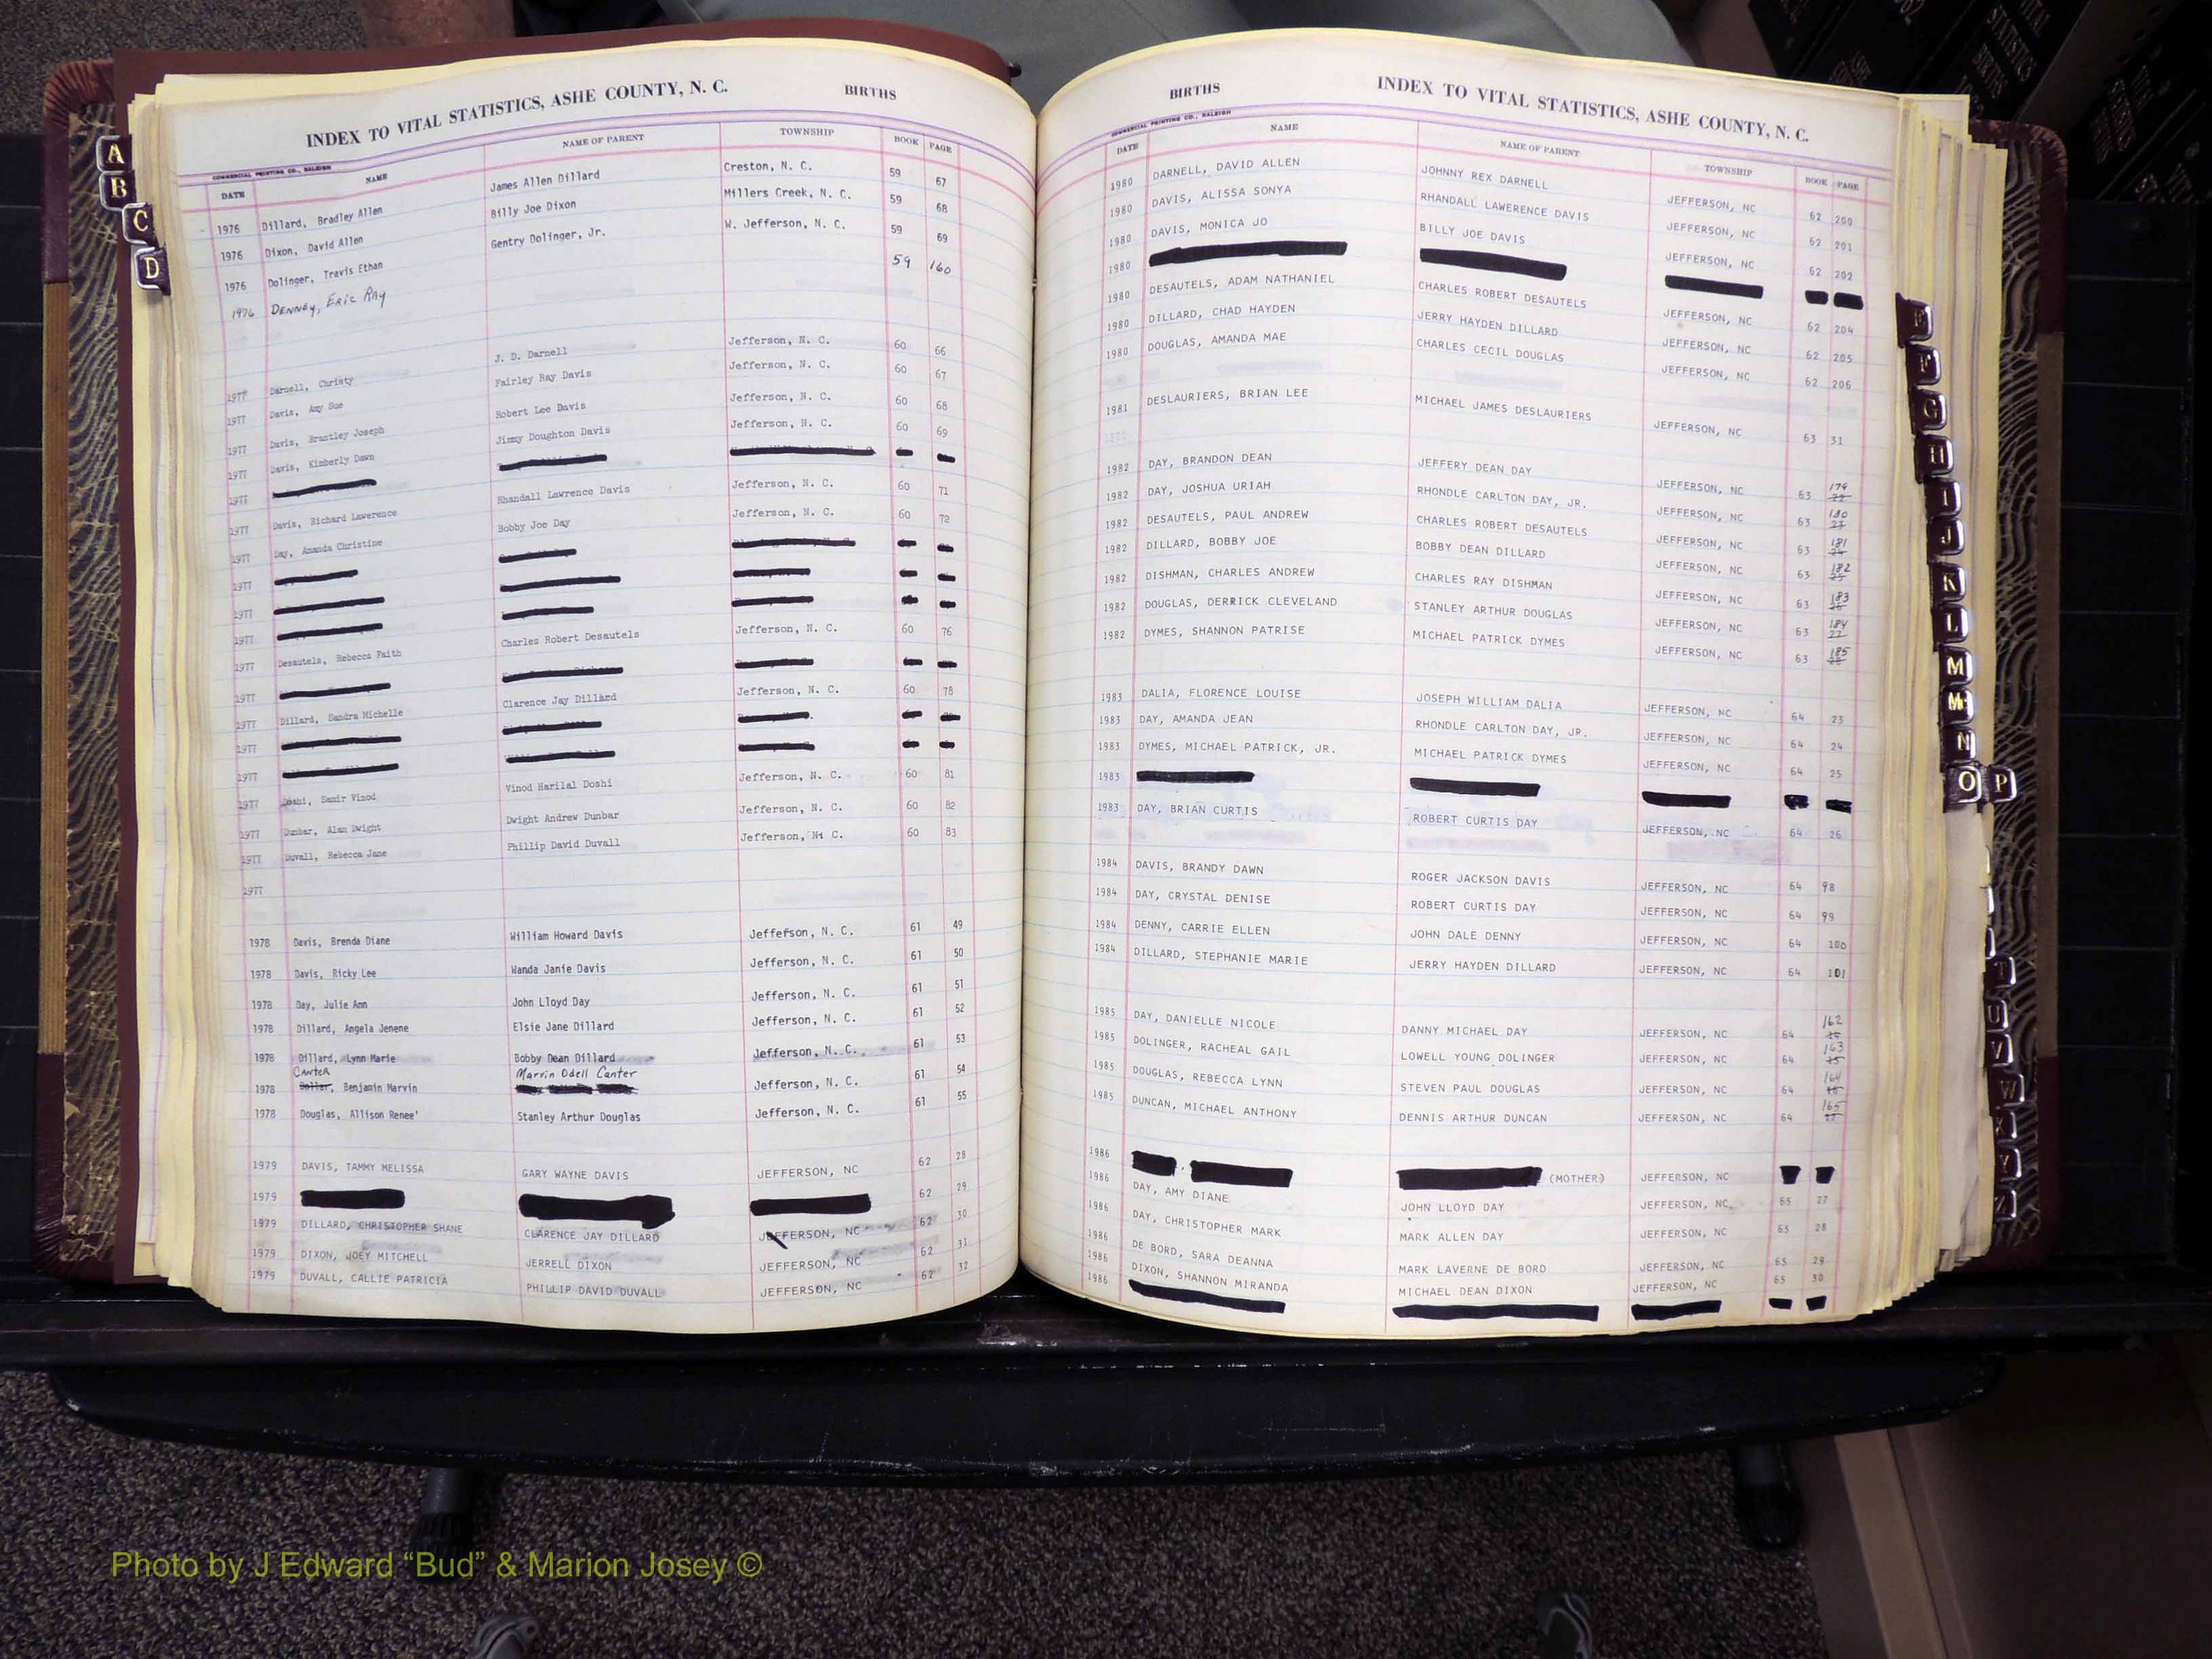 INDEX TO VITAL STATISTICS, ASHE COUNTY, N. C. BIRTHS
COMMERCIAL PRINTING CO., RALEIGH
DATE NAME NAME OF PARENT TOWNSHIP BOOK PAGE
1976 Dillard, Bradley Allen James Allen Dillard Creston, N. C. 59 67
1976 Dixon, David Allen Billy Joe Dixon Millers Creek, N. C. 59 68
1976 Dolinger, Travis Ethan Gentry Dolinger, Jr. W. Jefferson, N. C. 59 69
1976 DENNEY, ERIC RAY 59 160
1977 Darnell, Christy J. D. Darnell Jefferson, N. C. 60 66
1977 Davis, Amy Sue Fairley Ray Davis Jefferson, N. C. 60 67
1977 Davis, Brantley Joseph Robert Lee Davis Jefferson, N. C. 60 68
1977 Davis, Kimberly Dawn Jimmy Doughton Davis Jefferson, N. C. 60 69
1977
1977 Davis, Richard Lawerence Rhandall Lawrence Davis Jefferson, N. C. 60 71
1977 Day, Amanda Christine Bobby Joe Day Jefferson, N. C. 60 72
1977
1977
1977
1977 Desautels, Rebecca Faith Charles Robert Desautels Jefferson, N. C. 60 76
1977
1977 Dillard, Sandra Michelle Clarence Jay Dillard Jefferson, N. C. 60 78
1977
1977
1977 Doshi, Samir Vinod Vinod Harilal Doshi Jefferson, N. C. 60 81
1977 Dunbar, Alan Dwight Dwight Andrew Dunbar Jefferson, N. C. 60 82
1977 Duvall, Rebecca Jane Phillip David Duvall Jefferson, N. C. 60 83
1977
1978 Davis, Brenda Diane William Howard Davis Jefferson, N. C. 61 49
1978 Davis, Ricky Lee Wanda Janie Davis Jefferson, N. C. 61 50
1978 Day, Julie Ann John Lloyd Day Jefferson, N. C. 61 51
1978 Dillard, Angela Jenene Elsie Jane Dillard Jefferson, N. C. 61 52
1978 Dillard, Lynn Marie Bobby Dean Dillard Jefferson, N. C. 61 53
CANTER Marvin Odell Canter
1978 Benjamin Marvin Jefferson, N. C. 61 54
1978 Douglas, Allison Renee' Stanley Arthur Douglas Jefferson, N. C. 61 55
1979 DAVIS, TAMMY MELISSA GARY WAYNE DAVIS JEFFERSON, NC 62 28
1979 62 29
1979 DILLARD, CHRISTOPHER SHANE CLARENCE JAY DILLARD JEFFERSON, NC 62 30
1979 DIXON, JOEY MITCHELL JERRELL DIXON JEFFERSON, NC 62 31
1979 DUVALL, CALLIE PATRICIA PHILLIP DAVID DUVALL JEFFERSON, NC 62 32
BIRTHS INDEX TO VITAL STATISTICS, ASHE COUNTY, N. C.
COMMERCIAL PRINTING CO., RALEIGH
DATE NAME NAME OF PARENT TOWNSHIP BOOK PAGE
1980 DARNELL, DAVID ALLEN JOHNNY REX DARNELL JEFFERSON, NC 62 200
1980 DAVIS, ALISSA SONYA RHANDALL LAWERENCE DAVIS JEFFERSON, NC 62 201
1980 DAVIS, MONICA JO BILLY JOE DAVIS JEFFERSON, NC 62 202
1980
1980 DESAUTELS, ADAM NATHANIEL CHARLES ROBERT DESAUTELS JEFFERSON, NC 62 204
1980 DILLARD, CHAD HAYDEN JERRY HAYDEN DILLARD JEFFERSON, NC 62 205
1980 DOUGLAS, AMANDA MAE CHARLES CECIL DOUGLAS JEFFERSON, NC 62 206
1981 DESLAURIERS, BRIAN LEE MICHAEL JAMES DESLAURIERS JEFFERSON, NC 63 31
1982 DAY, BRANDON DEAN JEFFERY DEAN DAY JEFFERSON, NC 63 179
1982 DAY, JOSHUA URIAH RHONDLE CARLTON DAY, JR. JEFFERSON, NC 63 180
1982 DESAUTELS, PAUL ANDREW CHARLES ROBERT DESAUTELS JEFFERSON, NC 63 181
1982 DILLARD, BOBBY JOE BOBBY DEAN DILLARD JEFFERSON, NC 63 182
1982 DISHMAN, CHARLES ANDREW CHARLES RAY DISHMAN JEFFERSON, NC 63 183
1982 DOUGLAS, DERRICK CLEVELAND STANLEY ARTHUR DOUGLAS JEFFERSON, NC 63 184
1982 DYMES, SHANNON PATRISE MICHAEL PATRICK DYMES JEFFERSON, NC 63 185
1983 DALIA, FLORENCE LOUISE JOSEPH WILLIAM DALIA JEFFERSON, NC 64 23
1983 DAY, AMANDA JEAN RHONDLE CARLTON DAY, JR. JEFFERSON, NC 64 24
1983 DYMES, MICHAEL PATRICK, JR. MICHAEL PATRICK DYMES JEFFERSON, NC 64 25
1983
1983 DAY, BRIAN CURTIS ROBERT CURTIS DAY JEFFERSON, NC 64 26
1984 DAVIS, BRANDY DAWN ROGER JACKSON DAVIS JEFFERSON, NC 64 98
1984 DAY, CRYSTAL DENISE ROBERT CURTIS DAY JEFFERSON, NC 64 99
1984 DENNY, CARRIE ELLEN JOHN DALE DENNY JEFFERSON, NC 64 100
1984 DILLARD, STEPHANIE MARIE JERRY HAYDEN DILLARD JEFFERSON, NC 64 101
1985 DAY, DANIELLE NICOLE DANNY MICHAEL DAY JEFFERSON, NC 64 162
1985 DOLINGER, RACHEAL GAIL LOWELL YOUNG DOLINGER JEFFERSON, NC 64 163
1985 DOUGLAS, REBECCA LYNN STEVEN PAUL DOUGLAS JEFFERSON, NC 64 164
1985 DUNCAN, MICHAEL ANTHONY DENNIS ARTHUR DUNCAN JEFFERSON, NC 64 165
1986 (MOTHER) JEFFERSON, NC
1986 DAY, AMY DIANE JOHN LLOYD DAY JEFFERSON, NC 65 27
1986 DAY, CHRISTOPHER MARK MARK ALLEN DAY JEFFERSON, NC 65 28
1986 DE BORD, SARA DEANNA MARK LAVERNE DE BORD JEFFERSON, NC 65 29
1986 DIXON, SHANNON MIRANDA MICHAEL DEAN DIXON JEFFERSON, NC 65 30
1986
A
B
C
D
E
F
G
H
I
J
K
L
M
Mc
N
O P
T
U
V
W
Photo by J Edward “Bud” & Marion Josey ©